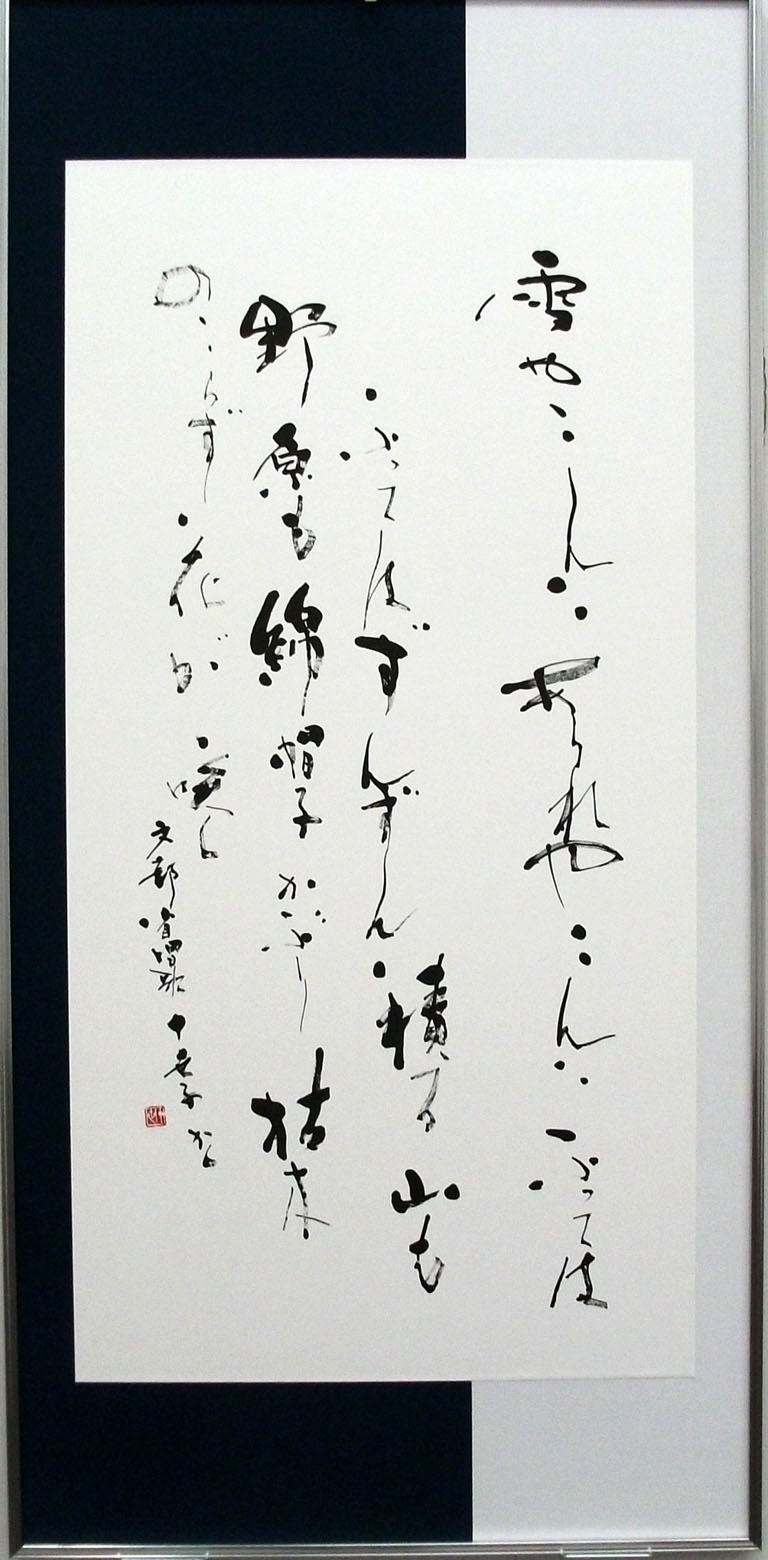 雪やこんこん あられやこんこん ふっては
ふってはずんずん積る 山も
野原も綿帽子かぶり 枯木
のこらず花が咲く
文部省唱歌